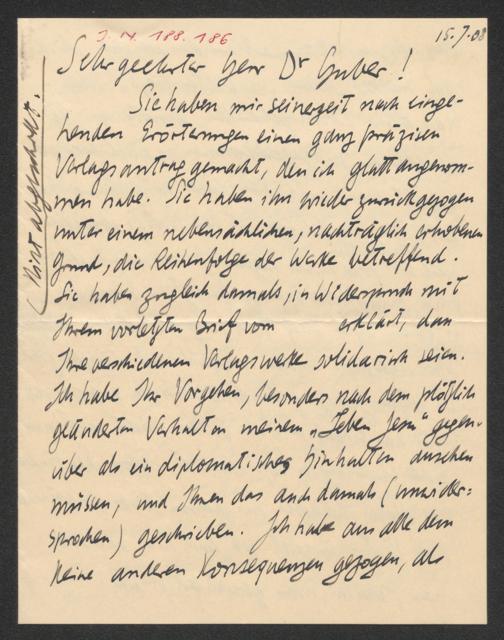 J. N. 188.186
15.7.08
Sehr geehrter Herr Dr Gruber!
Sie haben mir seinerzeit nach einge-
henden Erörterungen einen ganz präzisen
Verlagsantrag gemacht, den ich glatt angenom-
men habe. Sie haben ihn wieder zurückgezogen
unter einem nebensächlichen, nachträglich erhobenen
Grund, die Reihenfolge der Werke betreffend.
Sie haben zugleich damals, in Widerspruch mit
Ihrem vorletzten Brief vom erklärt, dass
Ihre verschiedenen Verlagswerke solidarisch seien.
Ich habe Ihr Vorgehen, besonders nach dem plötzlich
geänderten Verhalten meinem „Leben Jesu“ gegen-
über als ein diplomatisches Hinhalten ansehen
müssen, und Ihnen das auch damals (unwider-
sprochen) geschrieben. Ich habe aus alle dem
keine anderen Konsequenzen gezogen, als
Nicht abgeschickt.